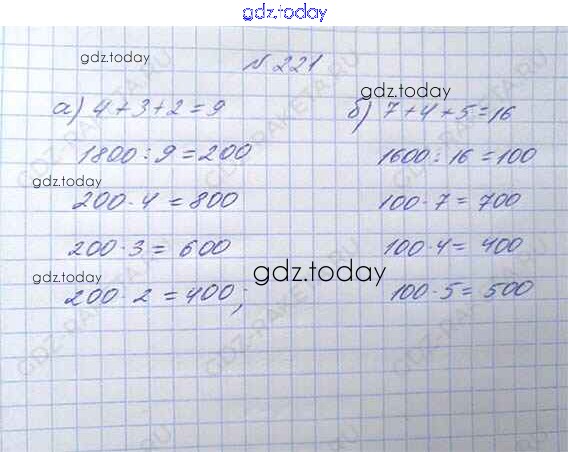 gdz.today
gdz.today
№ 221
gdz.today
а) 4 + 3 + 2 = 9
б) 7 + 4 + 5 = 16
1800 : 9 = 200
1600 : 16 = 100
gdz.today
200 · 4 = 800
100 · 7 = 700
200 · 3 = 600
100 · 4 = 400
gdz.today
gdz.today
200 · 2 = 400;
100 · 5 = 500
GDZ-RAKETA.RU